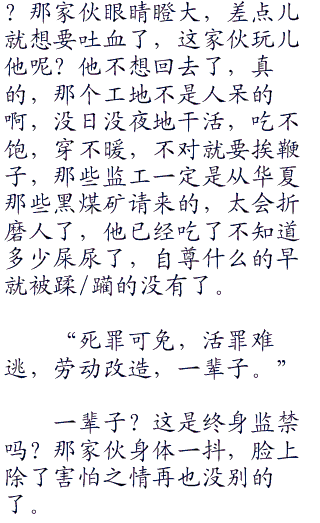 ？那家伙眼睛瞪大，差点儿
就想要吐血了，这家伙玩儿
他呢？他不想回去了，真
的，那个工地不是人呆的
啊，没日没夜地干活，吃不
饱，穿不暖，不对就要挨鞭
子，那些监工一定是从华夏
那些黑煤矿请来的，太会折
磨人了，他已经吃了不知道
多少屎尿了，自尊什么的早
就被蹂/躏的没有了。
“死罪可免，活罪难
逃，劳动改造，一辈子。”
一辈子？这是终身监禁
吗？那家伙身体一抖，脸上
除了害怕之情再也没别的
了。